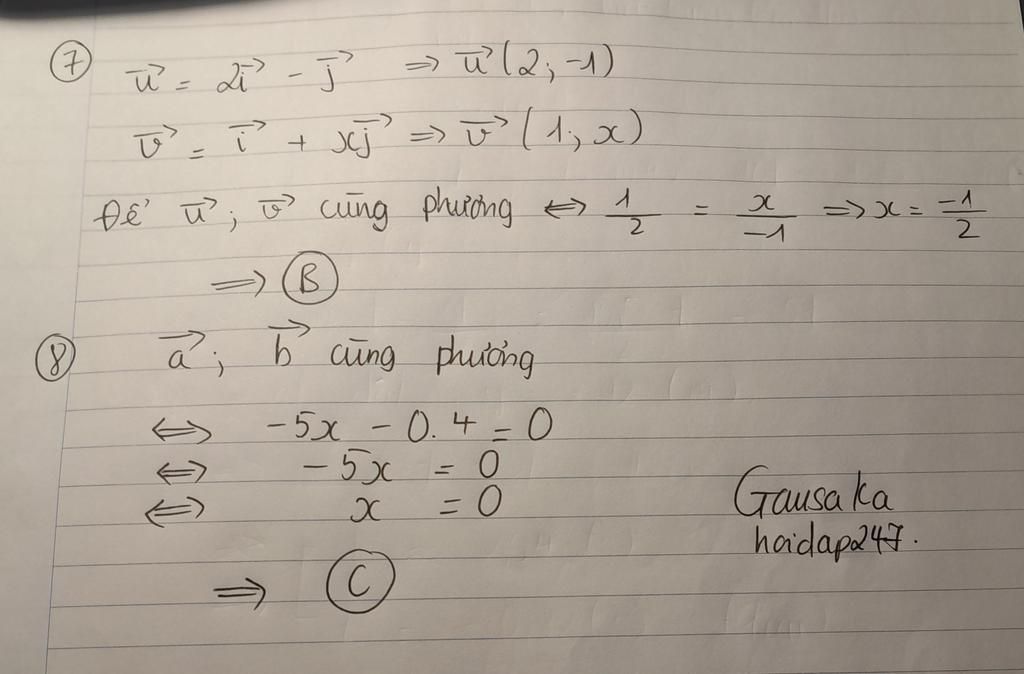 7 u⃗ = 2i⃗ - j⃗ ⇒ u⃗ (2; -1)
v⃗ = i⃗ + xj⃗ ⇒ v⃗ (1; x)
Để u⃗; v⃗ cùng phương ⇔ 1/2 = x/-1 ⇒ x = -1/2
⇒ B
8 a⃗; b⃗ cùng phương
⇔ -5x - 0.4 = 0
⇔ -5x = 0
⇔ x = 0
Gausaka
hoidap247.
⇒ C